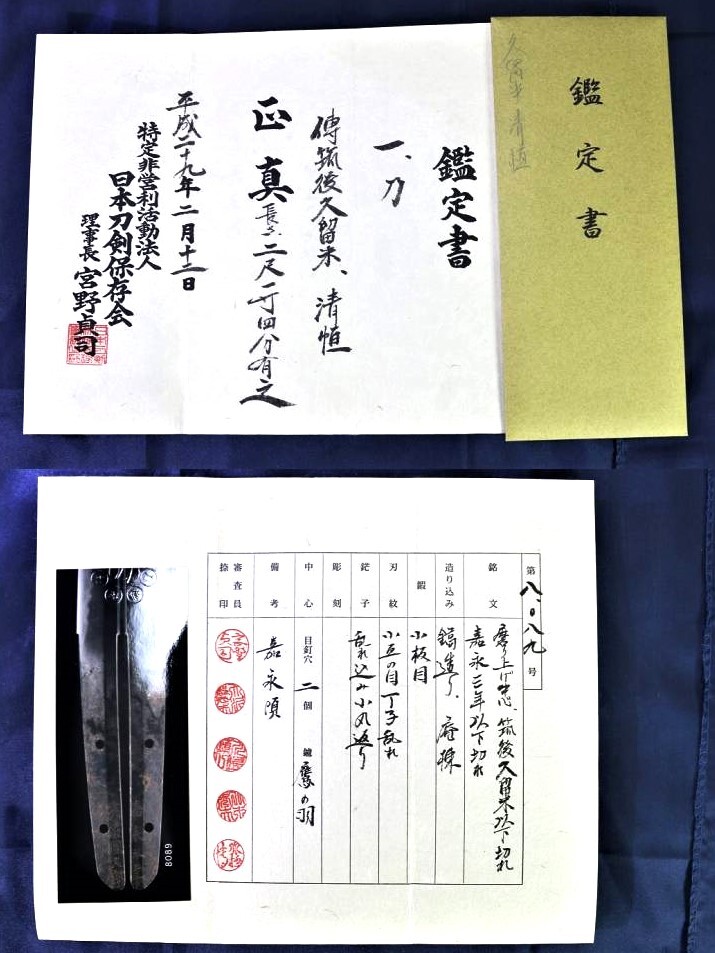 鑑定書
一、刀
傳筑後久留米、清恒
正真 長さ二尺一寸四分有之
平成二十九年二月十二日
特定非営利活動法人
日本刀剣保存会
理事長 宮野貞司
鑑定書
久留米清恒
第八〇八九号
銘文 磨り上げ中心、筑後久留米以下切れ
嘉永三年以下切れ
造り込み 鎬造り、庵棟
鍛 小板目
刃紋 小互の目丁子乱れ
鋩子 乱れ込み小丸返り
彫刻
中心 目釘穴 二個 鑢 鷹の羽
備考 嘉永頃
審査員捺印
8089